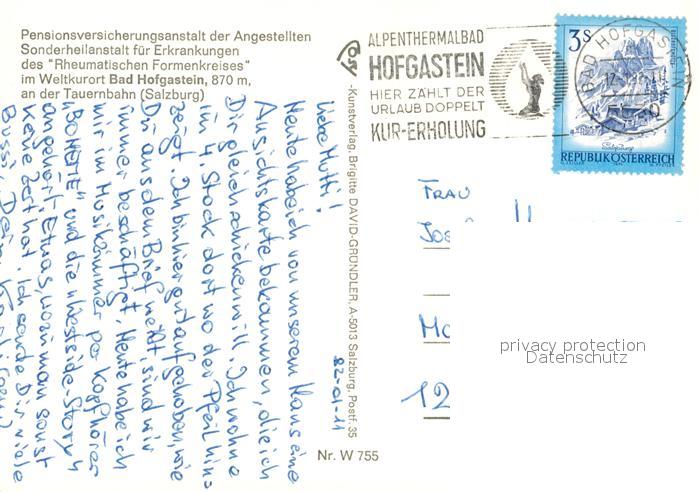 Pensionsversicherungsanstalt der Angestellten
Sonderheilanstalt für Erkrankungen
des "Rheumatischen Formenkreises"
im Weltkurort Bad Hofgastein, 870 m,
an der Tauernbahn (Salzburg)
82-01-11
Liebe Mutti!
Heute habe ich von unserem Haus eine
Ansichtskarte bekommen, die ich
Dir gleich schicken will. Ich wohne
im 4. Stock dort wo der Pfeil hin-
zeigt. Ich bin hier gut aufgehoben, wie
Du aus dem Brief weißt, sind wir
immer beschäftigt. Heute habe ich
wir im Musikzimmer per Kopfhörer
"BOHEME" und die "Westside-Story"
angehört. Etwas, wozu man sonst
keine Zeit hat. Ich sende Dir viele
Bussi, Deine
Kunstverlag, Brigitte DAVID-GRÜNDLER, A-5013 Salzburg, Postf. 35
Nr. W 755
ALPENTHERMALBAD
HOFGASTEIN
HIER ZÄHLT DER
URLAUB DOPPELT
KUR-ERHOLUNG
BAD HOFGASTEIN
3 S
Salzburg
REPUBLIK ÖSTERREICH
FRAU
JOS
MO
12
privacy protection
Datenschutz